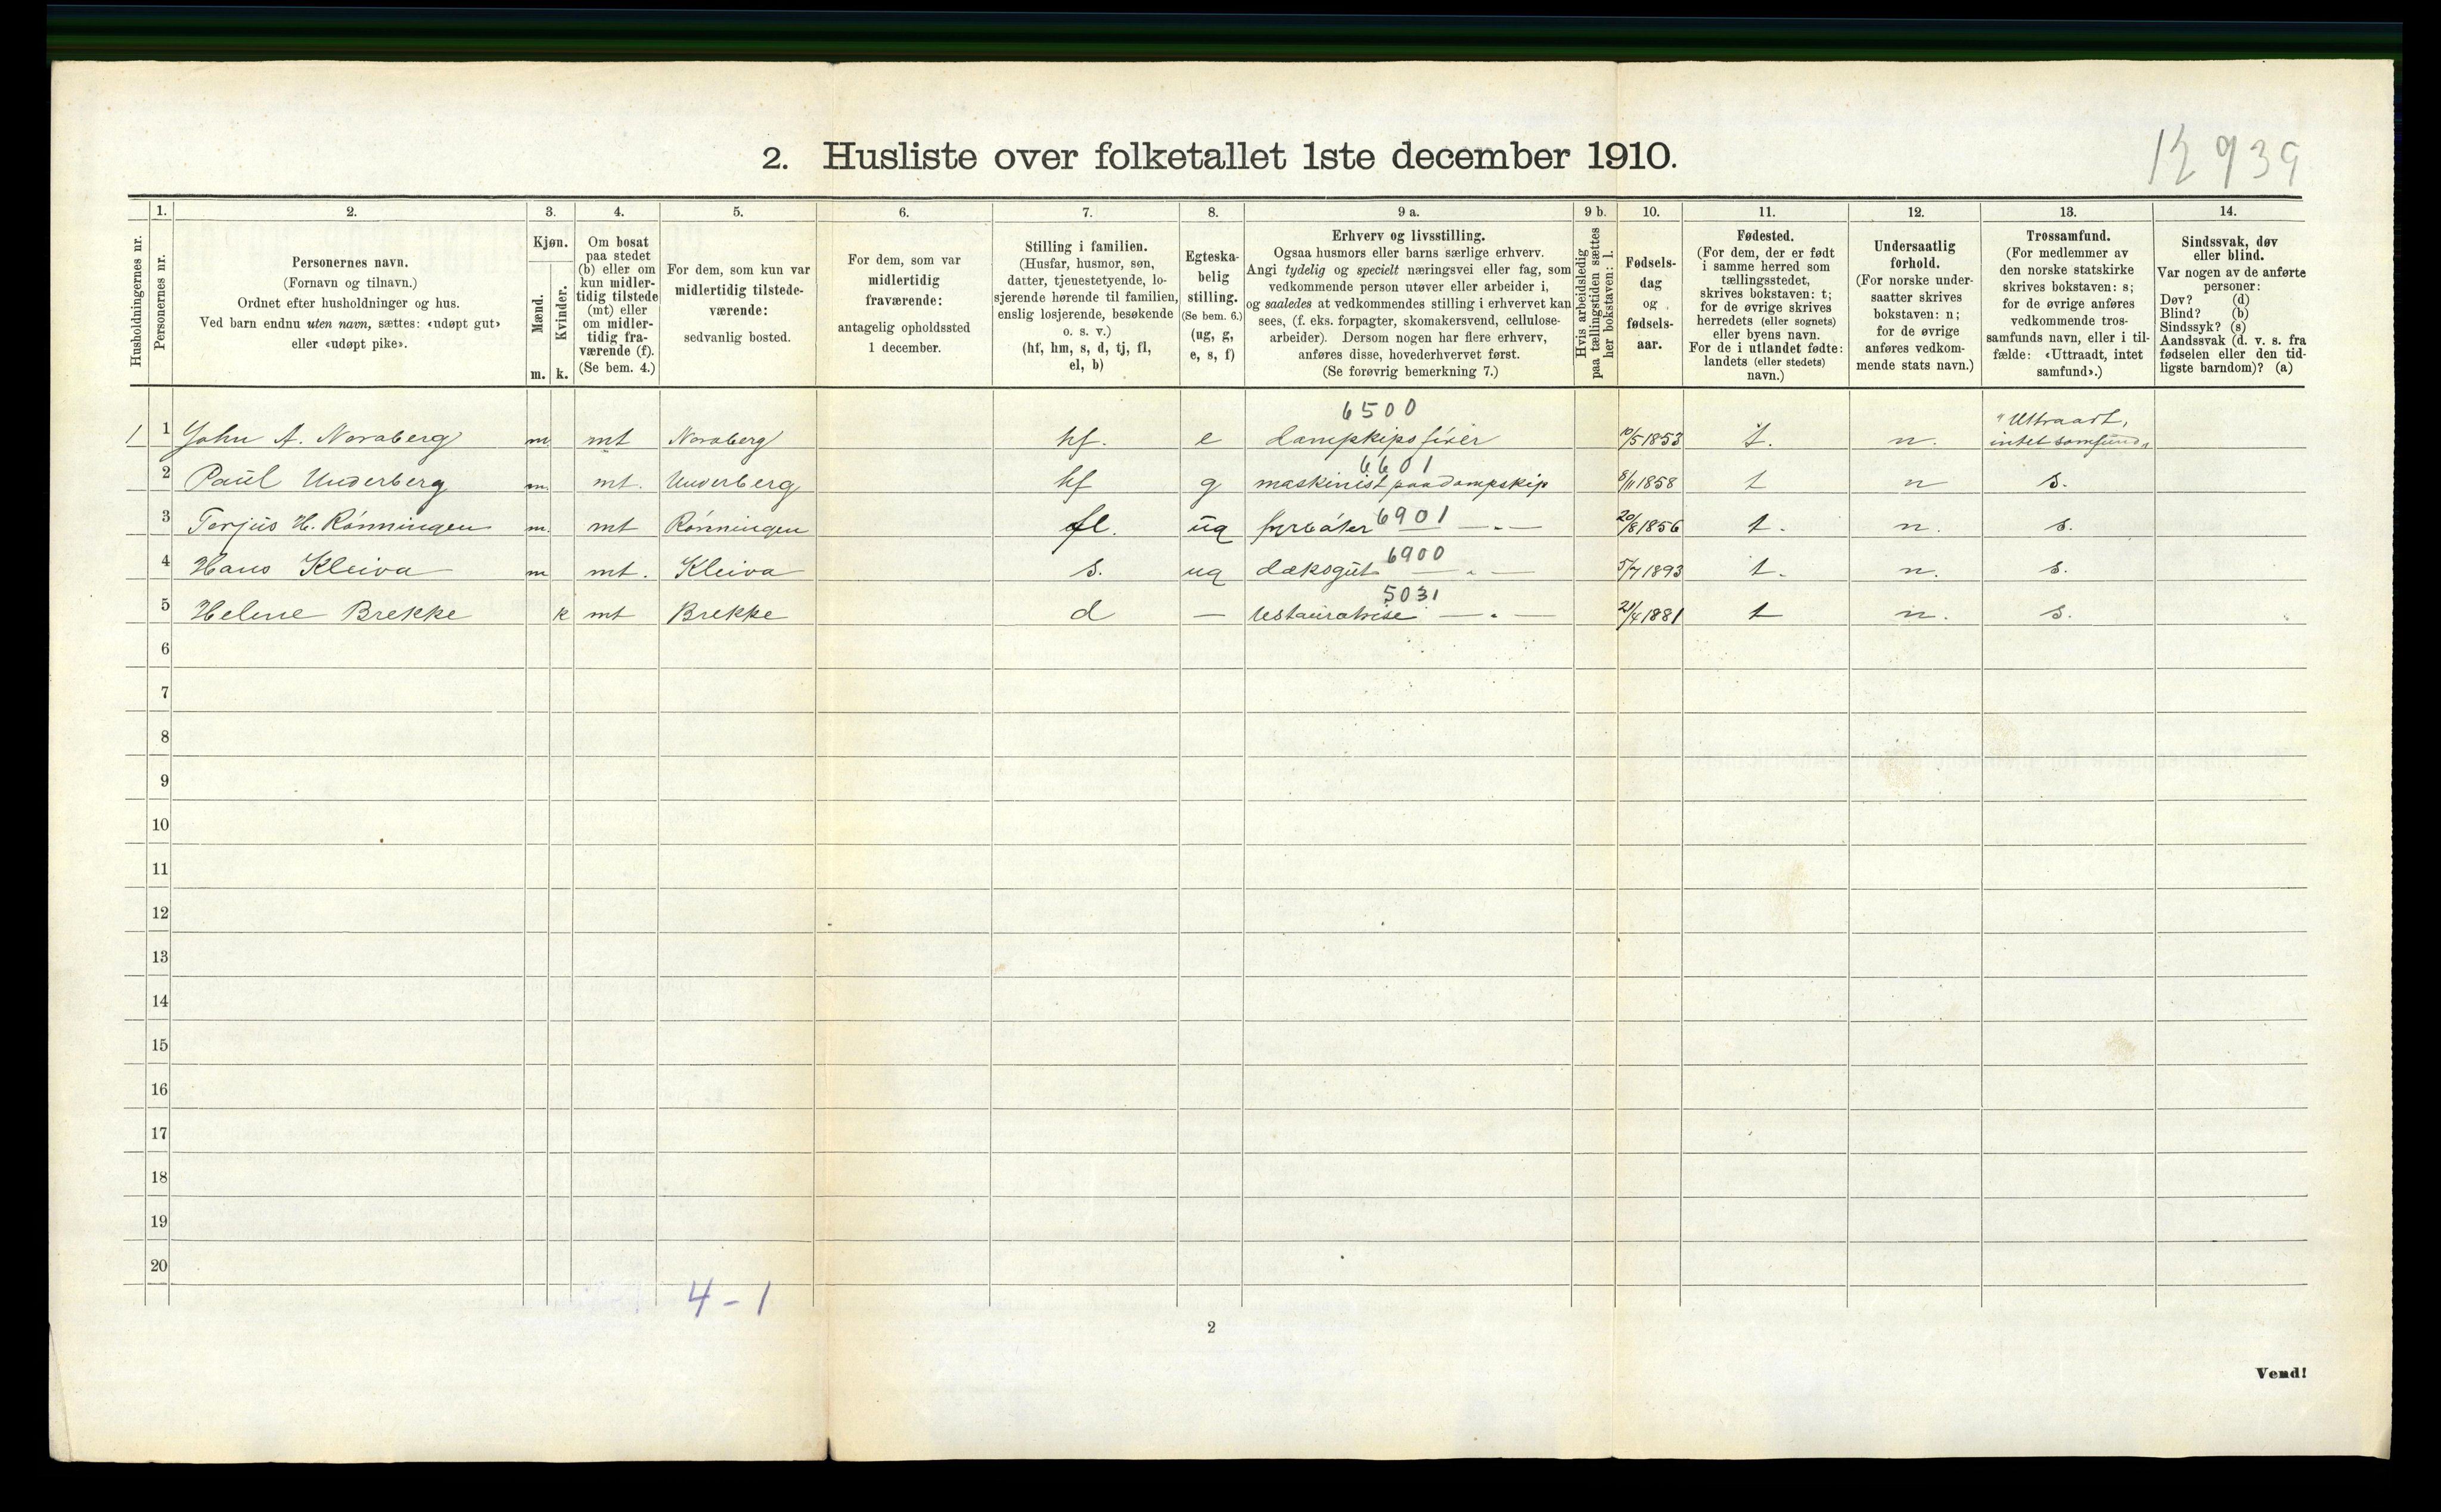 12939
2. Husliste over folketallet 1ste december 1910.
1. 2. 3. 4. 5. 6. 7. 8. 9 a. 9 b. 10. 11. 12. 13. 14.
Husholdningernes nr.
Personernes nr.
Personernes navn.
(Fornavn og tilnavn.)
Ordnet efter husholdninger og hus.
Ved barn endnu uten navn, sættes: «udøpt gut»
eller «udøpt pike».
Kjøn.
Mænd.
Kvinder.
m. k.
Om bosat
paa stedet
(b) eller om
kun midler-
tidig tilstede
(mt) eller
om midler-
tidig fra-
værende (f).
(Se bem. 4.)
For dem, som kun var
midlertidig tilstede-
værende:
sedvanlig bosted.
For dem, som var
midlertidig
fraværende:
antagelig opholdssted
1 december.
Stilling i familien.
(Husfar, husmor, søn,
datter, tjenestetyende, lo-
sjerende hørende til familien,
enslig losjerende, besøkende
o. s. v.)
(hf, hm, s, d, tj, fl,
el, b)
Egteska-
belig
stilling.
(Se bem. 6.)
(ug, g,
e, s, f)
Erhverv og livsstilling.
Ogsaa husmors eller barns særlige erhverv.
Angi tydelig og specielt næringsvei eller fag, som
vedkommende person utøver eller arbeider i,
og saaledes at vedkommendes stilling i erhvervet kan
sees, (f. eks. forpagter, skomakersvend, cellulose-
arbeider). Dersom nogen har flere erhverv,
anføres disse, hovederhvervet først.
(Se forøvrig bemerkning 7.)
Hvis arbeidsledig
paa tællingstiden sættes
her bokstaven: l.
Fødsels-
dag
og
fødsels-
aar.
Fødested.
(For dem, der er født
i samme herred som
tællingsstedet,
skrives bokstaven: t;
for de øvrige skrives
herredets (eller sognets)
eller byens navn.
For de i utlandet fødte:
landets (eller stedets)
navn.)
Undersaatlig
forhold.
(For norske under-
saatter skrives
bokstaven: n;
for de øvrige
anføres vedkom-
mende stats navn.)
Trossamfund.
(For medlemmer av
den norske statskirke
skrives bokstaven: s;
for de øvrige anføres
vedkommende tros-
samfunds navn, eller i til-
fælde: «Uttraadt, intet
samfund».)
Sindssvak, døv
eller blind.
Var nogen av de anførte
personer:
Døv? (d)
Blind? (b)
Sindssyk? (s)
Aandssvak (d. v. s. fra
fødselen eller den tid-
ligste barndom)? (a)
6500
1 1 John A. Noraberg m mt Noraberg hf. e dampskipsfører 10/5 1853 t. n. "Uttraadt, intet samfund"
6601
2 Paul Underberg m mt. Underberg hf g maskinist paa dampskip 8/11 1858 t n s.
3 Torjus H. Rönningen m. mt Rönningen fl. ug fyrböter 6901 — „ — 20/8 1856 t. n. s.
4 Hans Kleiva m mt. Kleiva s. ug dæksgut 6900 — „ — 5/7 1893 t. n. s.
5031
5 Helene Brekke k mt Brekke d — restauratrise — „ — 21/4 1881 t n. s.
6
7
8
9
10
11
12
13
14
15
16
17
18
19
20
4 - 1
2
Vend!